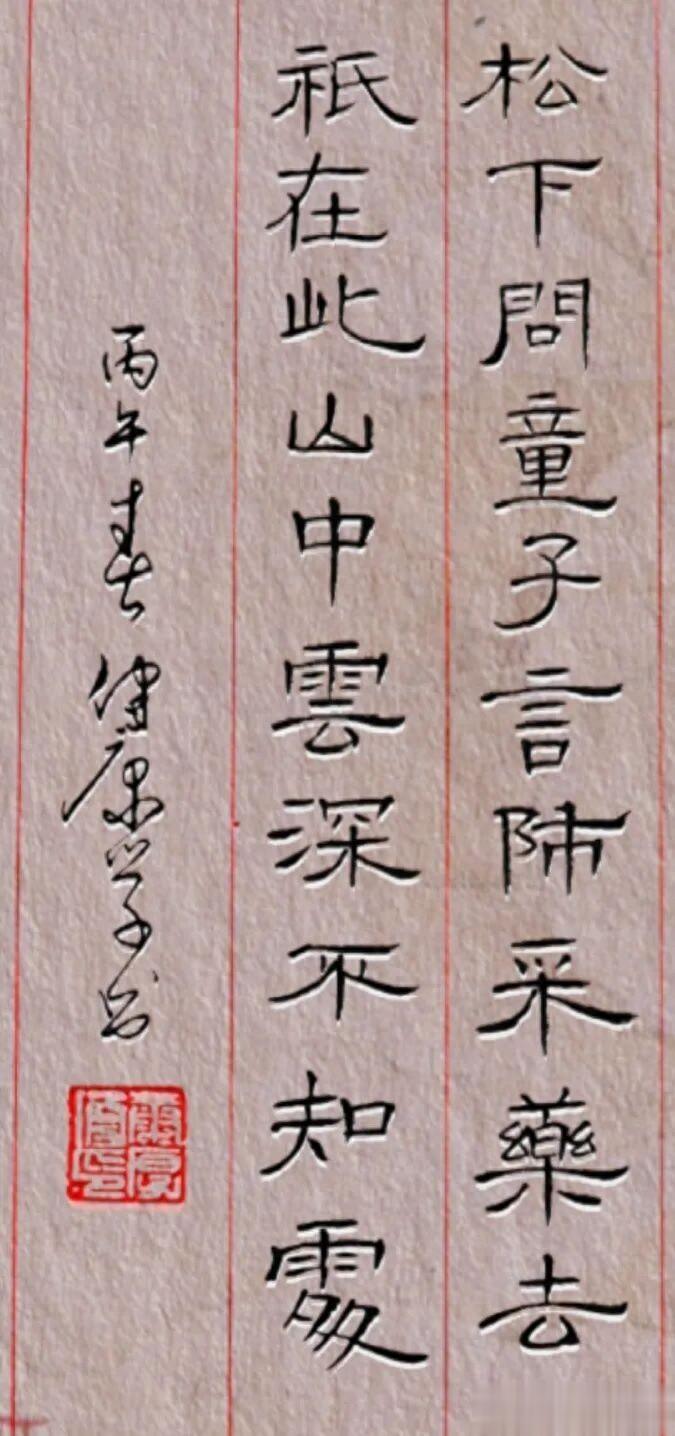 松下問童子言師采藥去
祇在此山中雲深不知處
丙午春健康学书